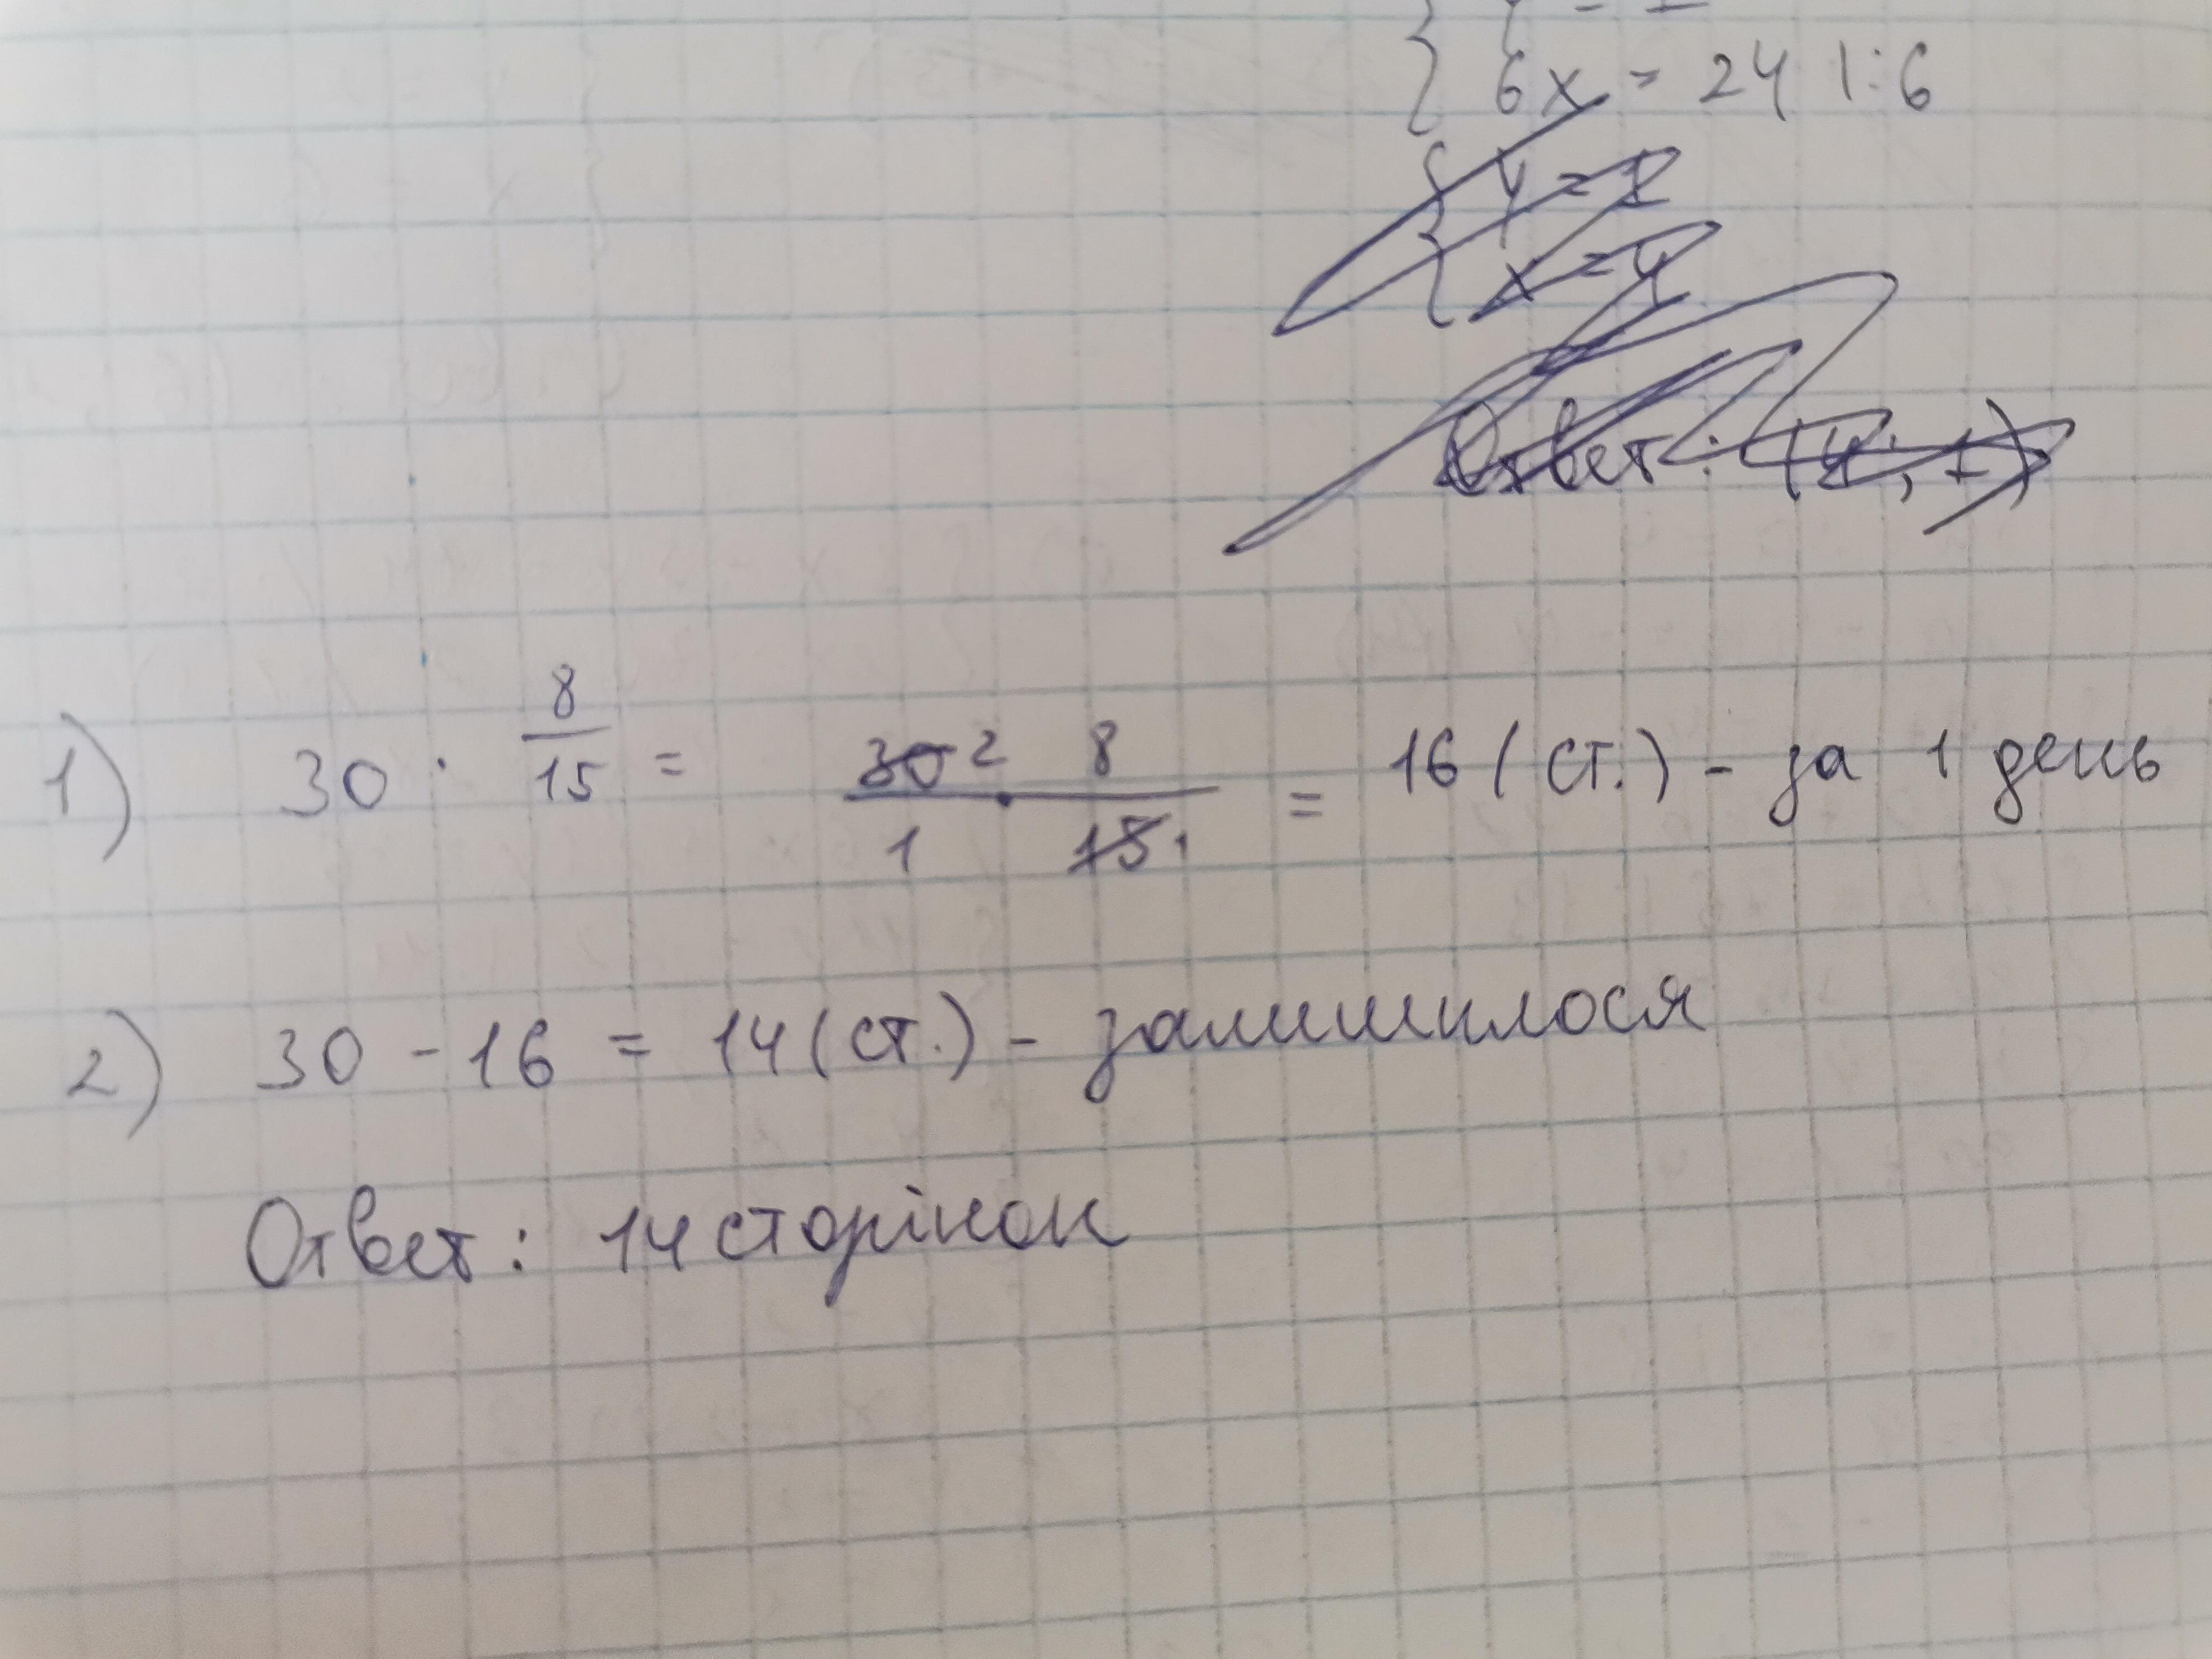 6x = 24 | : 6
{ y = 1
{ x = 4
Ответ: (4; 1)
1) 30 · 8/15 = 30 2 · 8 / 1 · 15 1 = 16 (ст.) - за 1 день
2) 30 - 16 = 14 (ст.) - залишилося
Ответ: 14 сторінок